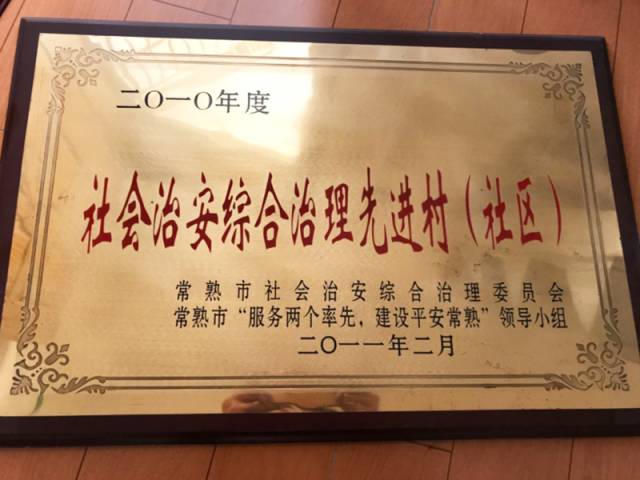 二〇一〇年度
社会治安综合治理先进村（社区）
常熟市社会治安综合治理委员会
常熟市“服务两个率先，建设平安常熟”领导小组
二〇一一年二月